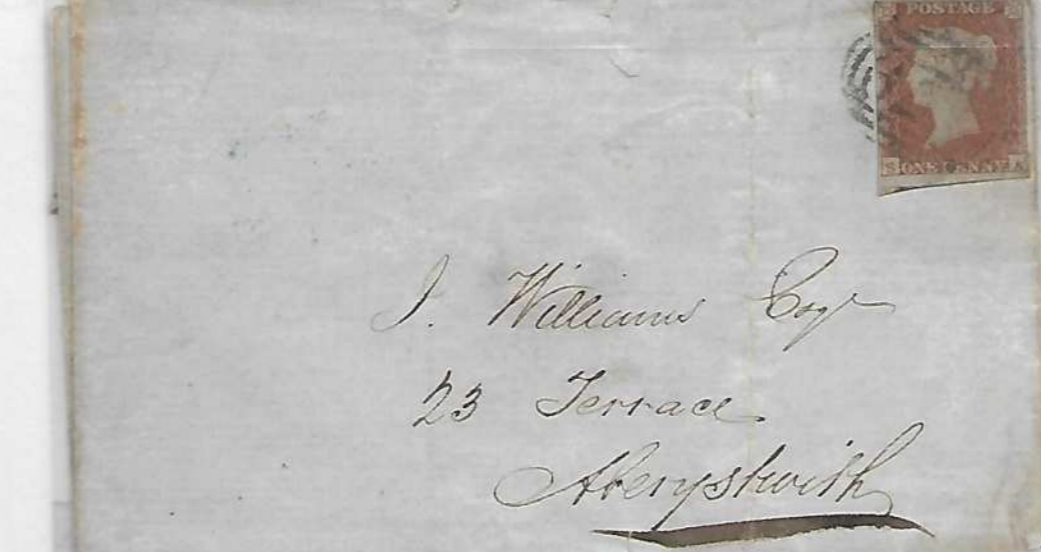 POSTAGE
ONE PENNY
J. Williams Esqr
23 Terrace
Aberystwith